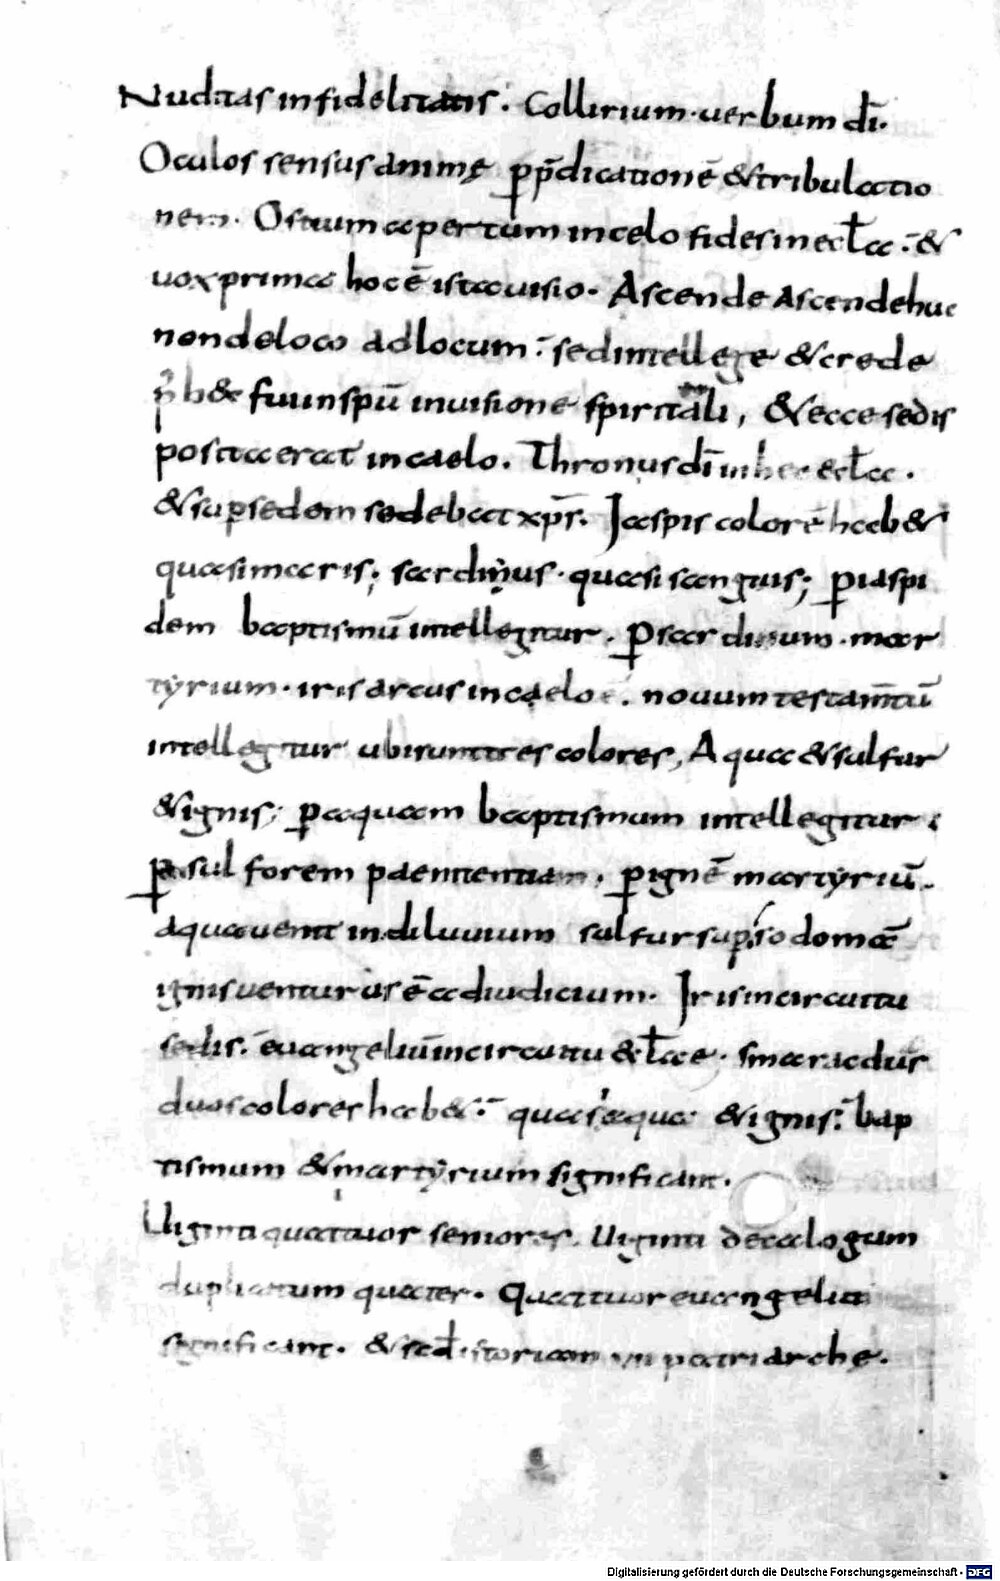 Nuditas infidelitatis. Collirium. uerbum dī.
Oculos sensus animę p p̄dicationē & tribulatio
nem. Ostium apertum in celo fides in eccła. &
uox prima hoc ē ista uisio. Ascende Ascende huc
non de loco ad locum. sed intellege & crede
fui in spū in uisione spiritali, & ecce sedis
posita erat in caelo. Thronus dī in hec eccła.
& sup sedem sedebat xp̄s. Jaspis colorē hab&
quasi maris; sardinus. quasi sanguis; p iaspi
dem baptismū intellegitur. P sardinum. mar
tyrium. iris arcus in caelo ē. nouum testam̄tū
intellegitur ubi sunt tres colores, Aqua & sulfur
& ignis; p aquam baptismum intellegitur;
p sulforem paenitentiam. p ignē martyriū.
aqua uenit in diluuium sulfur sup sodomā
ignis uenturus ē ad iudicium. Iris in circuitu
sedis. euangeliū in circuitu ecłae. smaracdus
duos colores hab&. quasi aqua & ignis. bap
tismum & martyrium significant.
Uiginti quattuor seniores. Uiginti decalogum
duplicatum quater. Quattuor euangelia
significant. & scd istoriam patriarchę.
Digitalisierung gefördert durch die Deutsche Forschungsgemeinschaft - DFG